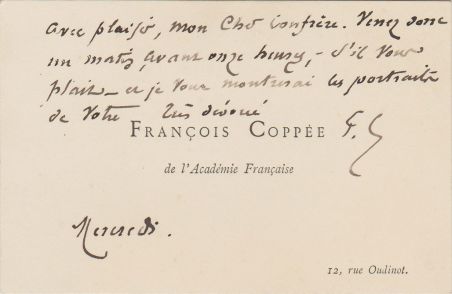 Avec plaisir, mon Cher Confrère. Venez donc
un matin, avant onze heures, - s'il vous
plait - et je vous montrerai les portraits
de Votre très dévoué
FRANÇOIS COPPÉE F. C
de l'Académie Française
Mercredi.
12, rue Oudinot.